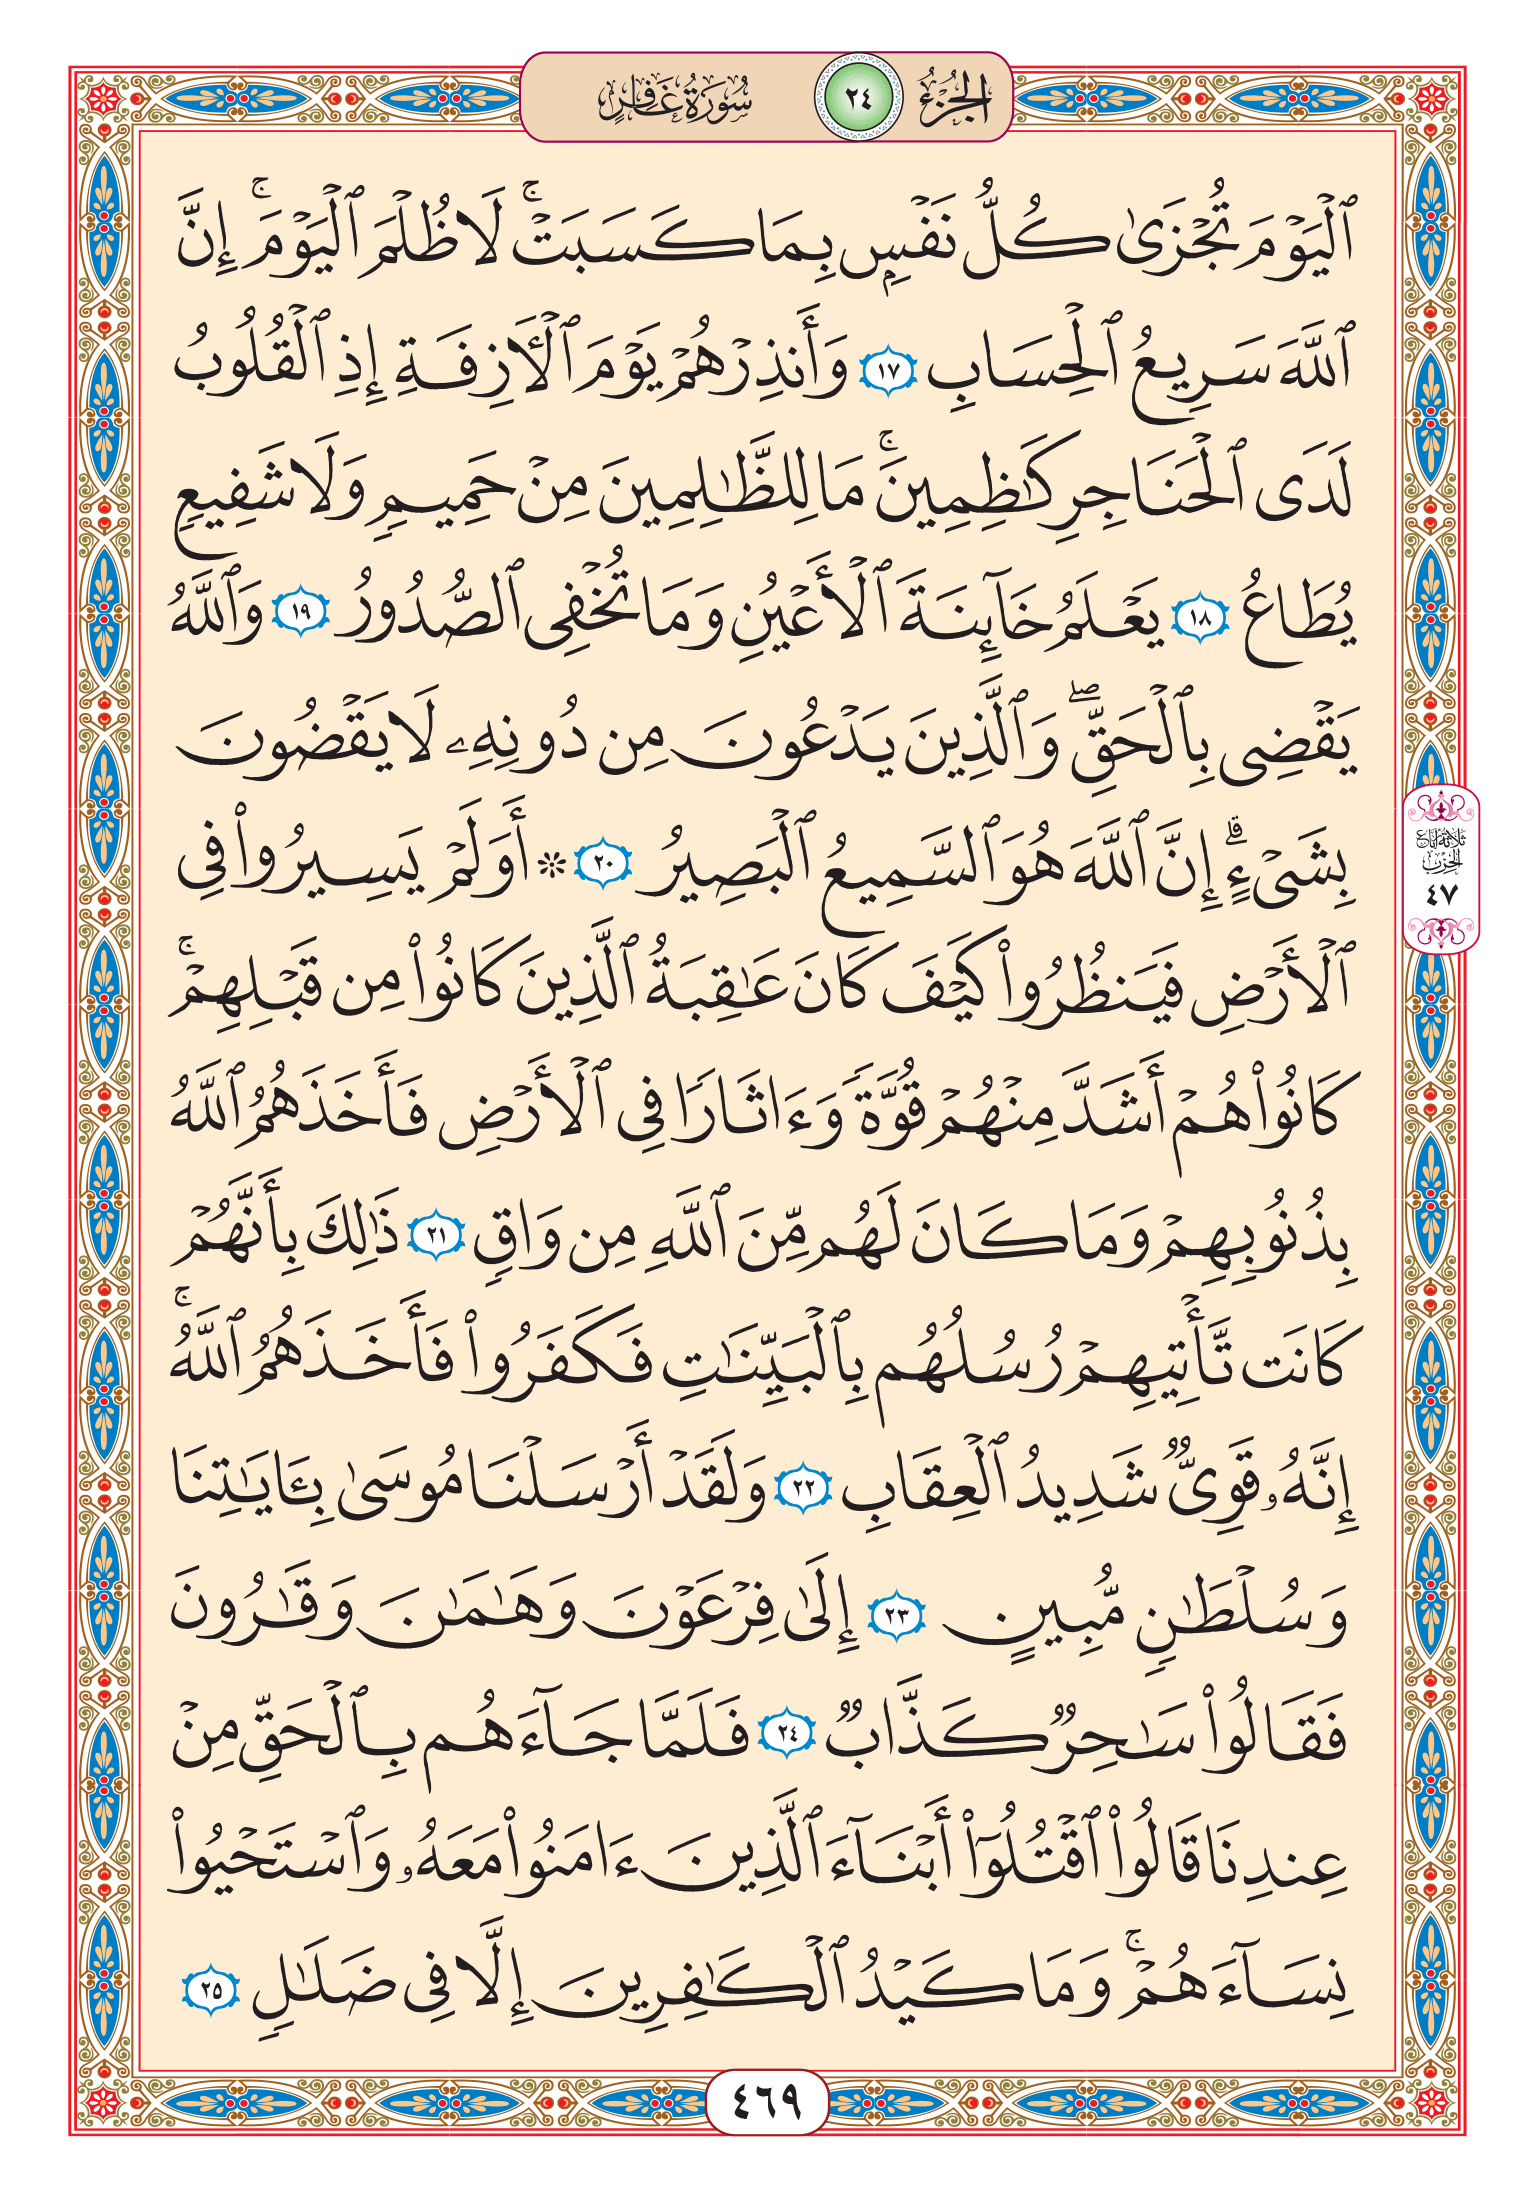 الجزء ٢٤ سورة غافر
ٱلۡيَوۡمَ تُجۡزَىٰ كُلُّ نَفۡسِۭ بِمَا كَسَبَتۡۚ لَا ظُلۡمَ ٱلۡيَوۡمَۚ إِنَّ
ٱللَّهَ سَرِيعُ ٱلۡحِسَابِ ١٧ وَأَنذِرۡهُمۡ يَوۡمَ ٱلۡأٓزِفَةِ إِذِ ٱلۡقُلُوبُ
لَدَى ٱلۡحَنَاجِرِ كَٰظِمِينَۚ مَا لِلظَّٰلِمِينَ مِنۡ حَمِيمٖ وَلَا شَفِيعٖ
يُطَاعُ ١٨ يَعۡلَمُ خَآئِنَةَ ٱلۡأَعۡيُنِ وَمَا تُخۡفِي ٱلصُّدُورُ ١٩ وَٱللَّهُ
يَقۡضِي بِٱلۡحَقِّۖ وَٱلَّذِينَ يَدۡعُونَ مِن دُونِهِۦ لَا يَقۡضُونَ
بِشَيۡءٍۗ إِنَّ ٱللَّهَ هُوَ ٱلسَّمِيعُ ٱلۡبَصِيرُ ٢٠ * أَوَلَمۡ يَسِيرُواْ فِي
ثلاثة أرباع
الحزب
٤٧
ٱلۡأَرۡضِ فَيَنظُرُواْ كَيۡفَ كَانَ عَٰقِبَةُ ٱلَّذِينَ كَانُواْ مِن قَبۡلِهِمۡۚ
كَانُواْ هُمۡ أَشَدَّ مِنۡهُمۡ قُوَّةٗ وَءَاثَارٗا فِي ٱلۡأَرۡضِ فَأَخَذَهُمُ ٱللَّهُ
بِذُنُوبِهِمۡ وَمَا كَانَ لَهُم مِّنَ ٱللَّهِ مِن وَاقٖ ٢١ ذَٰلِكَ بِأَنَّهُمۡ
كَانَت تَّأۡتِيهِمۡ رُسُلُهُم بِٱلۡبَيِّنَٰتِ فَكَفَرُواْ فَأَخَذَهُمُ ٱللَّهُۚ
إِنَّهُۥ قَوِيّٞ شَدِيدُ ٱلۡعِقَابِ ٢٢ وَلَقَدۡ أَرۡسَلۡنَا مُوسَىٰ بِـَٔايَٰتِنَا
وَسُلۡطَٰنٖ مُّبِينٍ ٢٣ إِلَىٰ فِرۡعَوۡنَ وَهَٰمَٰنَ وَقَٰرُونَ
فَقَالُواْ سَٰحِرٞ كَذَّابٞ ٢٤ فَلَمَّا جَآءَهُم بِٱلۡحَقِّ مِنۡ
عِندِنَا قَالُواْ ٱقۡتُلُوٓاْ أَبۡنَآءَ ٱلَّذِينَ ءَامَنُواْ مَعَهُۥ وَٱسۡتَحۡيُواْ
نِسَآءَهُمۡۚ وَمَا كَيۡدُ ٱلۡكَٰفِرِينَ إِلَّا فِي ضَلَٰلٖ ٢٥
٤٦٩